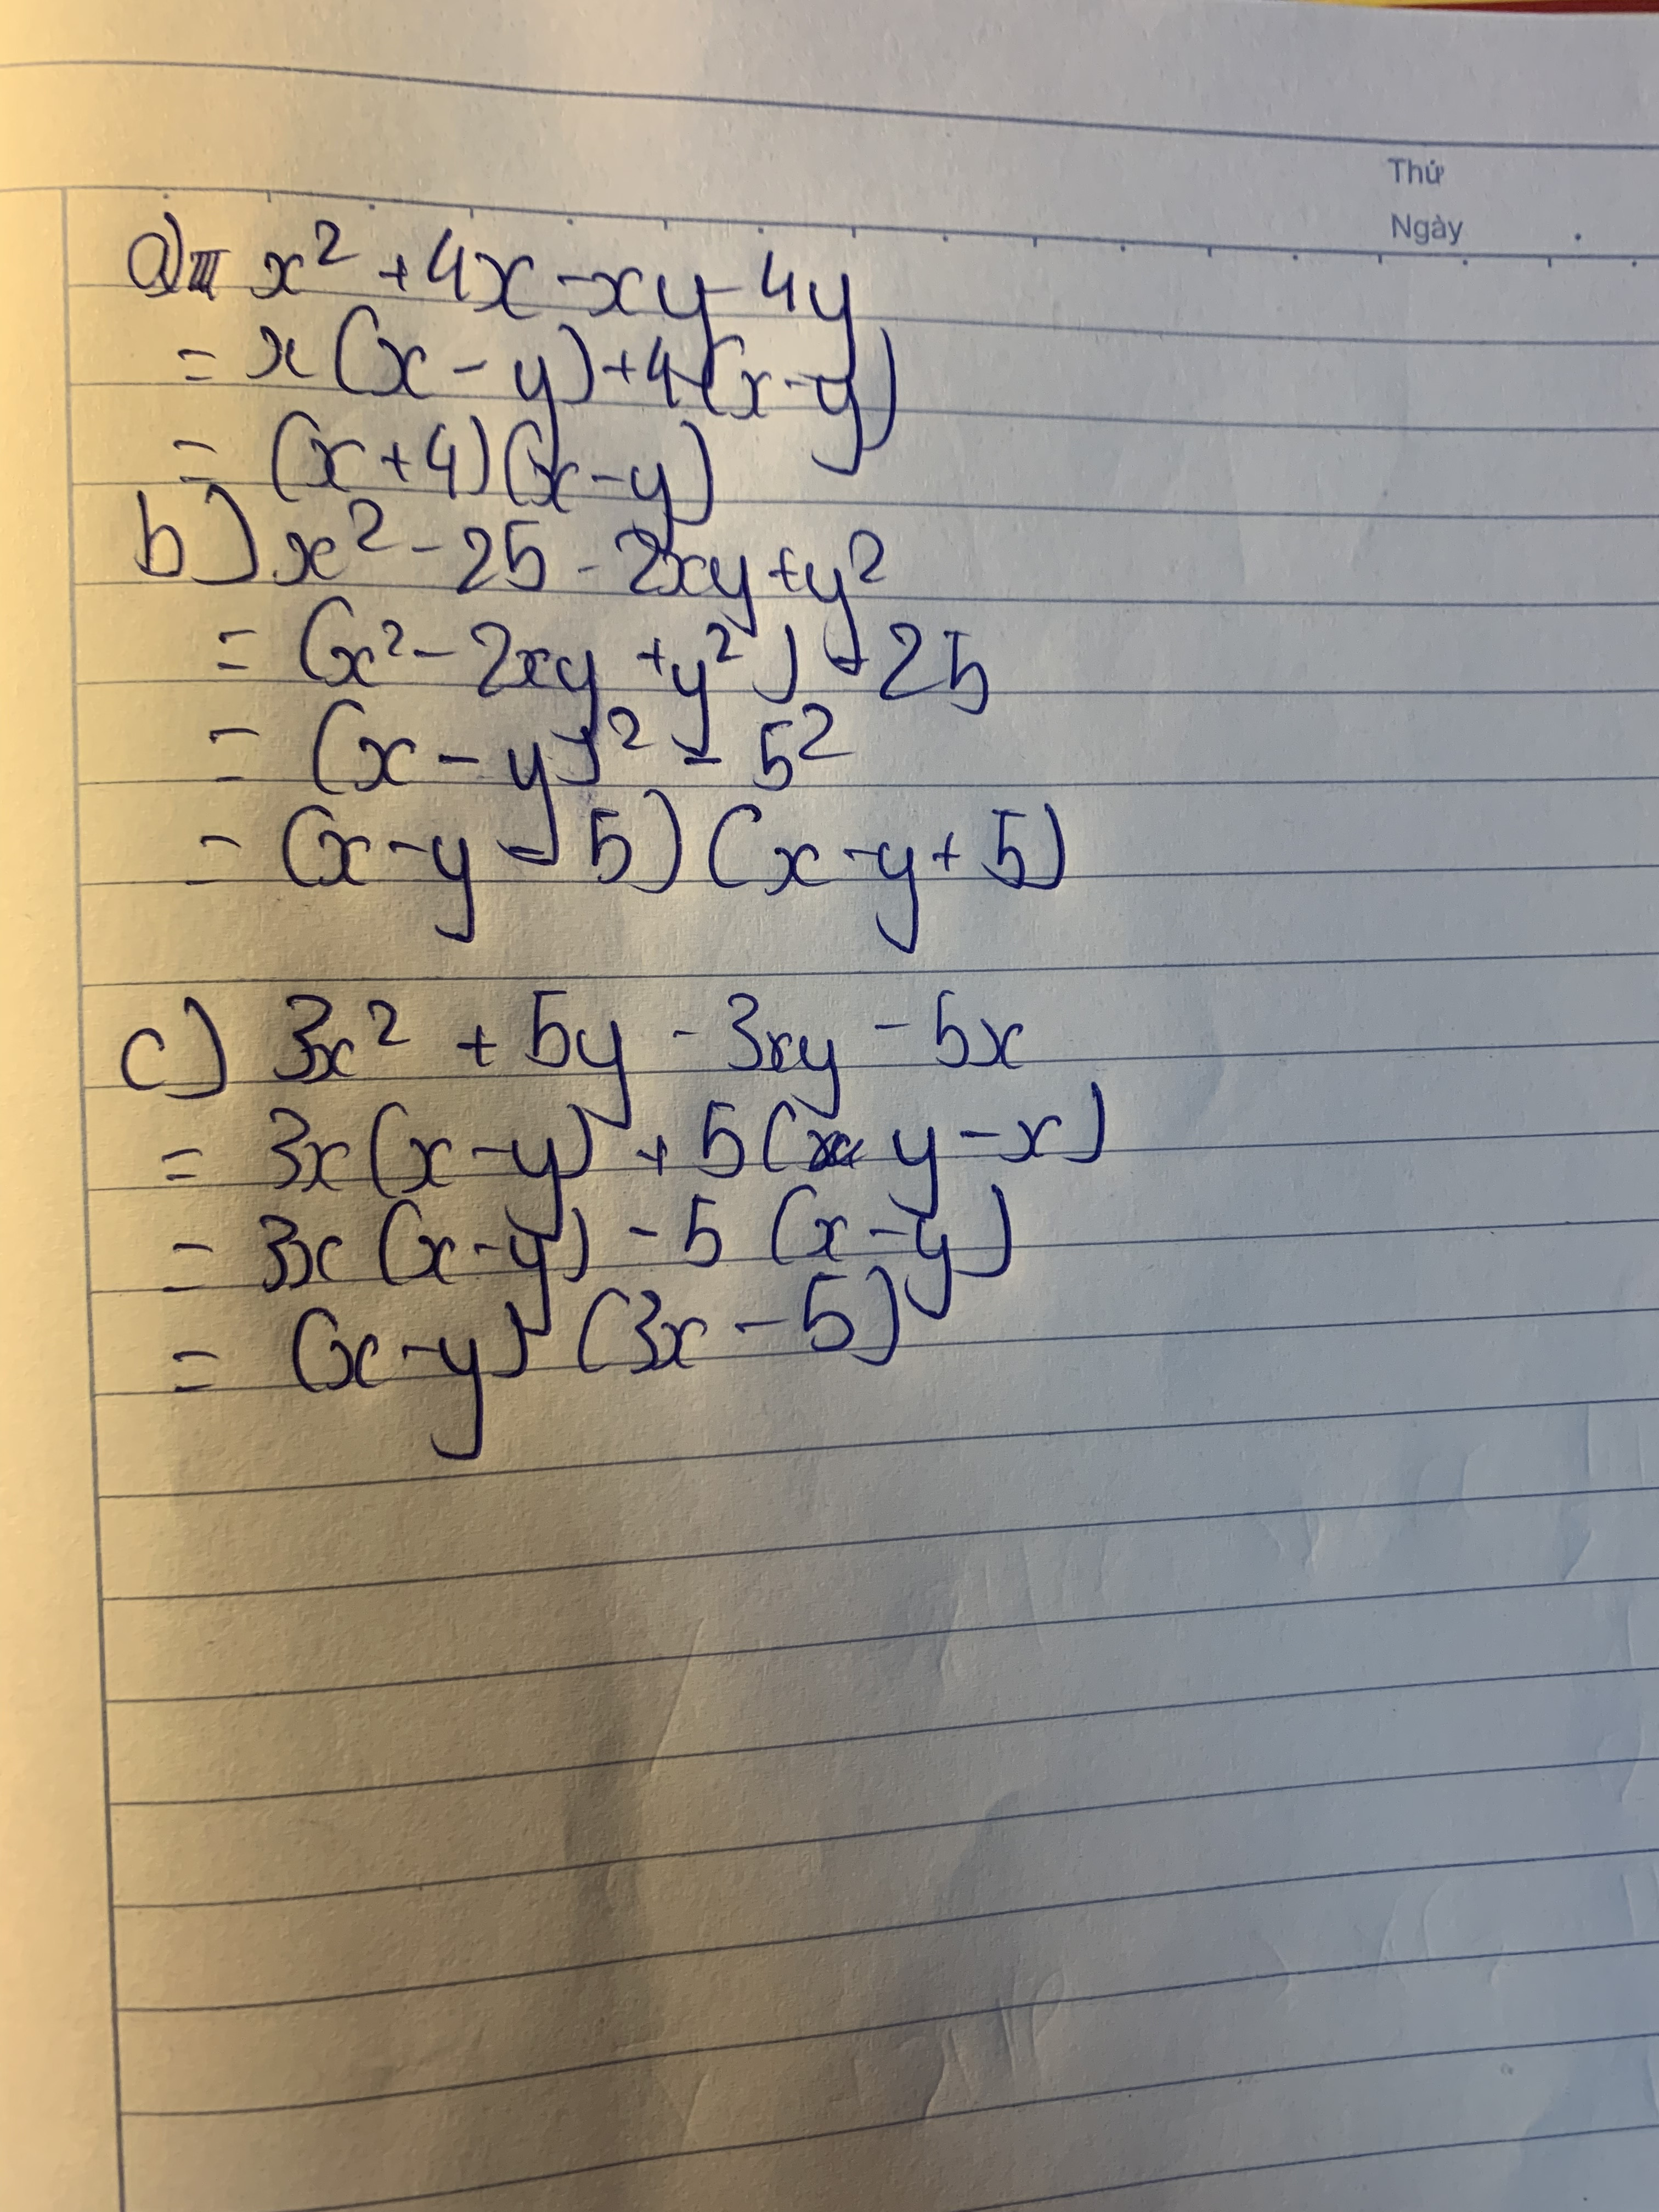 Thứ
Ngày
a) x² + 4x - xy - 4y
= x(x - y) + 4(x - y)
= (x + 4)(x - y)
b) x² - 25 - 2xy + y²
= (x² - 2xy + y²) - 25
= (x - y)² - 5²
= (x - y - 5)(x - y + 5)
c) 3x² + 5y - 3xy - 5x
= 3x(x - y) + 5(y - x)
= 3x(x - y) - 5(x - y)
= (x - y)(3x - 5)